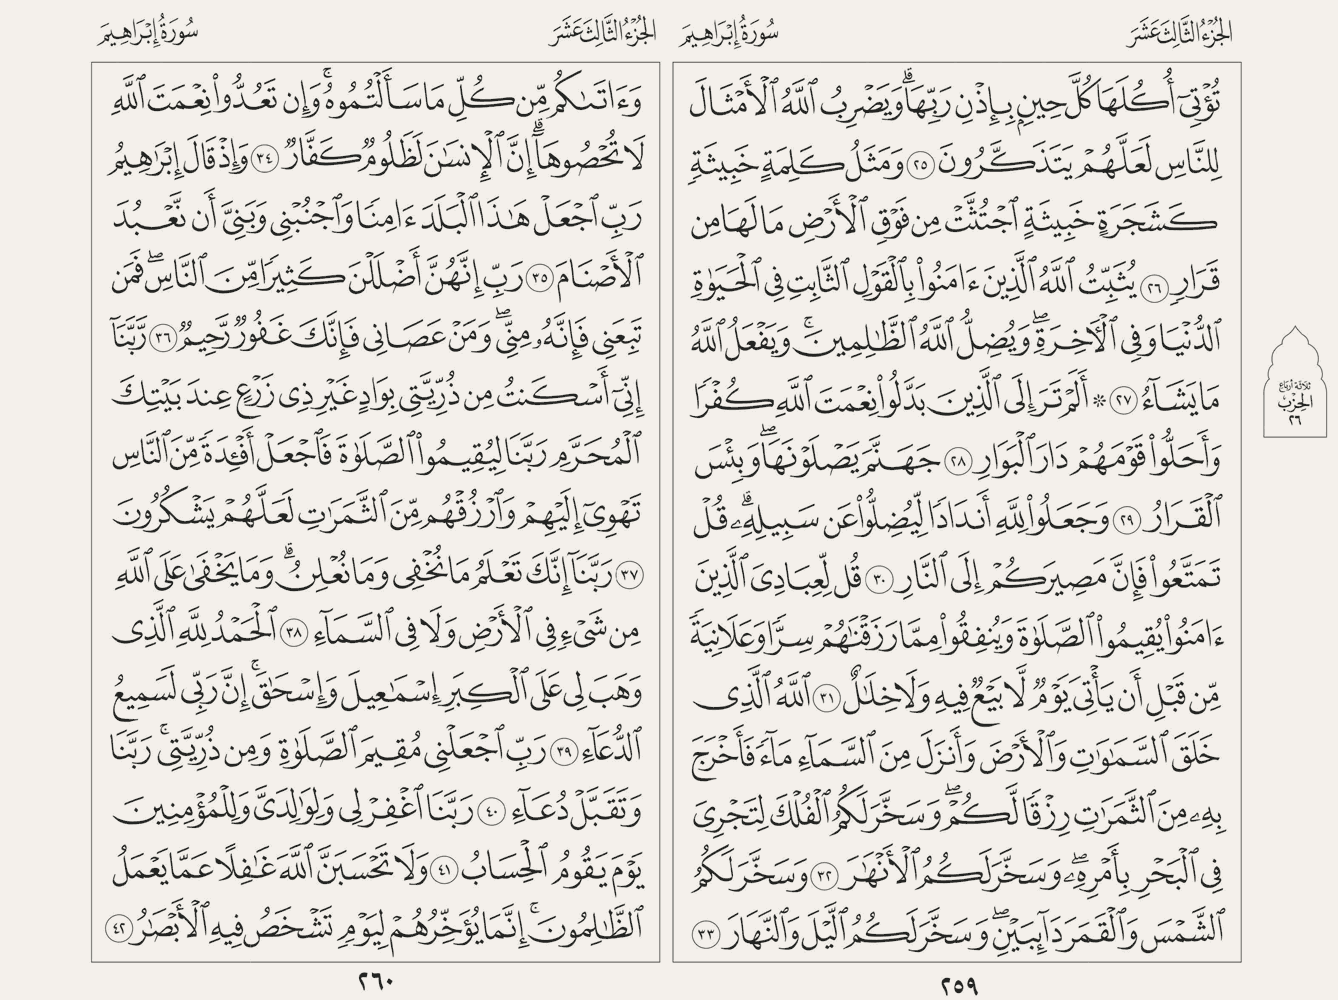 الجزء الثالث عشر
سورة إبراهيم
تُؤْتِىٓ أُكُلَهَا كُلَّ حِينٍۭ بِإِذْنِ رَبِّهَاۗ وَيَضْرِبُ ٱللَّهُ ٱلْأَمْثَالَ
لِلنَّاسِ لَعَلَّهُمْ يَتَذَكَّرُونَ ٢٥ وَمَثَلُ كَلِمَةٍ خَبِيثَةٍ
كَشَجَرَةٍ خَبِيثَةٍ ٱجْتُثَّتْ مِن فَوْقِ ٱلْأَرْضِ مَا لَهَا مِن
قَرَارٍ ٢٦ يُثَبِّتُ ٱللَّهُ ٱلَّذِينَ ءَامَنُوا۟ بِٱلْقَوْلِ ٱلثَّابِتِ فِى ٱلْحَيَوٰةِ
ٱلدُّنْيَا وَفِى ٱلْـَٔاخِرَةِۖ وَيُضِلُّ ٱللَّهُ ٱلظَّـٰلِمِينَۚ وَيَفْعَلُ ٱللَّهُ
مَا يَشَآءُ ٢٧ ۞ أَلَمْ تَرَ إِلَى ٱلَّذِينَ بَدَّلُوا۟ نِعْمَتَ ٱللَّهِ كُفْرًا
وَأَحَلُّوا۟ قَوْمَهُمْ دَارَ ٱلْبَوَارِ ٢٨ جَهَنَّمَ يَصْلَوْنَهَاۖ وَبِئْسَ
ٱلْقَرَارُ ٢٩ وَجَعَلُوا۟ لِلَّهِ أَندَادًا لِّيُضِلُّوا۟ عَن سَبِيلِهِۦۗ قُلْ
تَمَتَّعُوا۟ فَإِنَّ مَصِيرَكُمْ إِلَى ٱلنَّارِ ٣٠ قُل لِّعِبَادِىَ ٱلَّذِينَ
ءَامَنُوا۟ يُقِيمُوا۟ ٱلصَّلَوٰةَ وَيُنفِقُوا۟ مِمَّا رَزَقْنَـٰهُمْ سِرًّا وَعَلَانِيَةً
مِّن قَبْلِ أَن يَأْتِىَ يَوْمٌ لَّا بَيْعٌ فِيهِ وَلَا خِلَـٰلٌ ٣١ ٱللَّهُ ٱلَّذِى
خَلَقَ ٱلسَّمَـٰوَٰتِ وَٱلْأَرْضَ وَأَنزَلَ مِنَ ٱلسَّمَآءِ مَآءً فَأَخْرَجَ
بِهِۦ مِنَ ٱلثَّمَرَٰتِ رِزْقًا لَّكُمْۖ وَسَخَّرَ لَكُمُ ٱلْفُلْكَ لِتَجْرِىَ
فِى ٱلْبَحْرِ بِأَمْرِهِۦۖ وَسَخَّرَ لَكُمُ ٱلْأَنْهَـٰرَ ٣٢ وَسَخَّرَ لَكُمُ
ٱلشَّمْسَ وَٱلْقَمَرَ دَآئِبَيْنِۖ وَسَخَّرَ لَكُمُ ٱلَّيْلَ وَٱلنَّهَارَ ٣٣
٢٥٩
ثلاثة أرباع
الحزب
٢٦
الجزء الثالث عشر
سورة إبراهيم
وَءَاتَىٰكُم مِّن كُلِّ مَا سَأَلْتُمُوهُۚ وَإِن تَعُدُّوا۟ نِعْمَتَ ٱللَّهِ
لَا تُحْصُوهَآۗ إِنَّ ٱلْإِنسَـٰنَ لَظَلُومٌ كَفَّارٌ ٣٤ وَإِذْ قَالَ إِبْرَٰهِيمُ
رَبِّ ٱجْعَلْ هَـٰذَا ٱلْبَلَدَ ءَامِنًا وَٱجْنُبْنِى وَبَنِىَّ أَن نَّعْبُدَ
ٱلْأَصْنَامَ ٣٥ رَبِّ إِنَّهُنَّ أَضْلَلْنَ كَثِيرًا مِّنَ ٱلنَّاسِۖ فَمَن
تَبِعَنِى فَإِنَّهُۥ مِنِّىۖ وَمَنْ عَصَانِى فَإِنَّكَ غَفُورٌ رَّحِيمٌ ٣٦ رَّبَّنَآ
إِنِّىٓ أَسْكَنتُ مِن ذُرِّيَّتِى بِوَادٍ غَيْرِ ذِى زَرْعٍ عِندَ بَيْتِكَ
ٱلْمُحَرَّمِ رَبَّنَا لِيُقِيمُوا۟ ٱلصَّلَوٰةَ فَٱجْعَلْ أَفْـِٔدَةً مِّنَ ٱلنَّاسِ
تَهْوِىٓ إِلَيْهِمْ وَٱرْزُقْهُم مِّنَ ٱلثَّمَرَٰتِ لَعَلَّهُمْ يَشْكُرُونَ
٣٧ رَبَّنَآ إِنَّكَ تَعْلَمُ مَا نُخْفِى وَمَا نُعْلِنُۗ وَمَا يَخْفَىٰ عَلَى ٱللَّهِ
مِن شَىْءٍ فِى ٱلْأَرْضِ وَلَا فِى ٱلسَّمَآءِ ٣٨ ٱلْحَمْدُ لِلَّهِ ٱلَّذِى
وَهَبَ لِى عَلَى ٱلْكِبَرِ إِسْمَـٰعِيلَ وَإِسْحَـٰقَۚ إِنَّ رَبِّى لَسَمِيعُ
ٱلدُّعَآءِ ٣٩ رَبِّ ٱجْعَلْنِى مُقِيمَ ٱلصَّلَوٰةِ وَمِن ذُرِّيَّتِىۚ رَبَّنَا
وَتَقَبَّلْ دُعَآءِ ٤٠ رَبَّنَا ٱغْفِرْ لِى وَلِوَٰلِدَىَّ وَلِلْمُؤْمِنِينَ
يَوْمَ يَقُومُ ٱلْحِسَابُ ٤١ وَلَا تَحْسَبَنَّ ٱللَّهَ غَـٰفِلًا عَمَّا يَعْمَلُ
ٱلظَّـٰلِمُونَۚ إِنَّمَا يُؤَخِّرُهُمْ لِيَوْمٍ تَشْخَصُ فِيهِ ٱلْأَبْصَـٰرُ ٤٢
٢٦٠